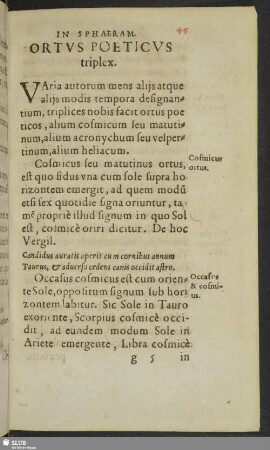 IN SPHAERAM.
45
ORTVS POETICVS
triplex.
VAria autorum mens alijs atque
alijs modis tempora designan-
tium, triplices nobis facit ortus poe
ticos, alium cosmicum seu matuti-
num, alium acronychum seu vesper-
tinum, alium heliacum.
Cosmicus seu matutinus ortus,
Cosmicus
ortus.
est quo sidus vna cum sole supra ho
rizontem emergit, ad quem modũ
etsi sex quotidie signa oriuntur, ta-
mẽ propriè illud signum in quo Sol
est, cosmicè oriri dicitur. De hoc
Vergil.
Candidus auratis aperit cum cornibus annum
Taurus, & aduerso cedens canis occidit astro.
Occasus cosmicus est cum orien-
Occasus
& cosmi-
us.
te Sole, oppositum signum sub hori
zontem labitur. Sic Sole in Tauro
exoriente, Scorpius cosmicè occi-
dit, ad eundem modum Sole in
Ariete emergente, Libra cosmicè
g 5 in
SLUB